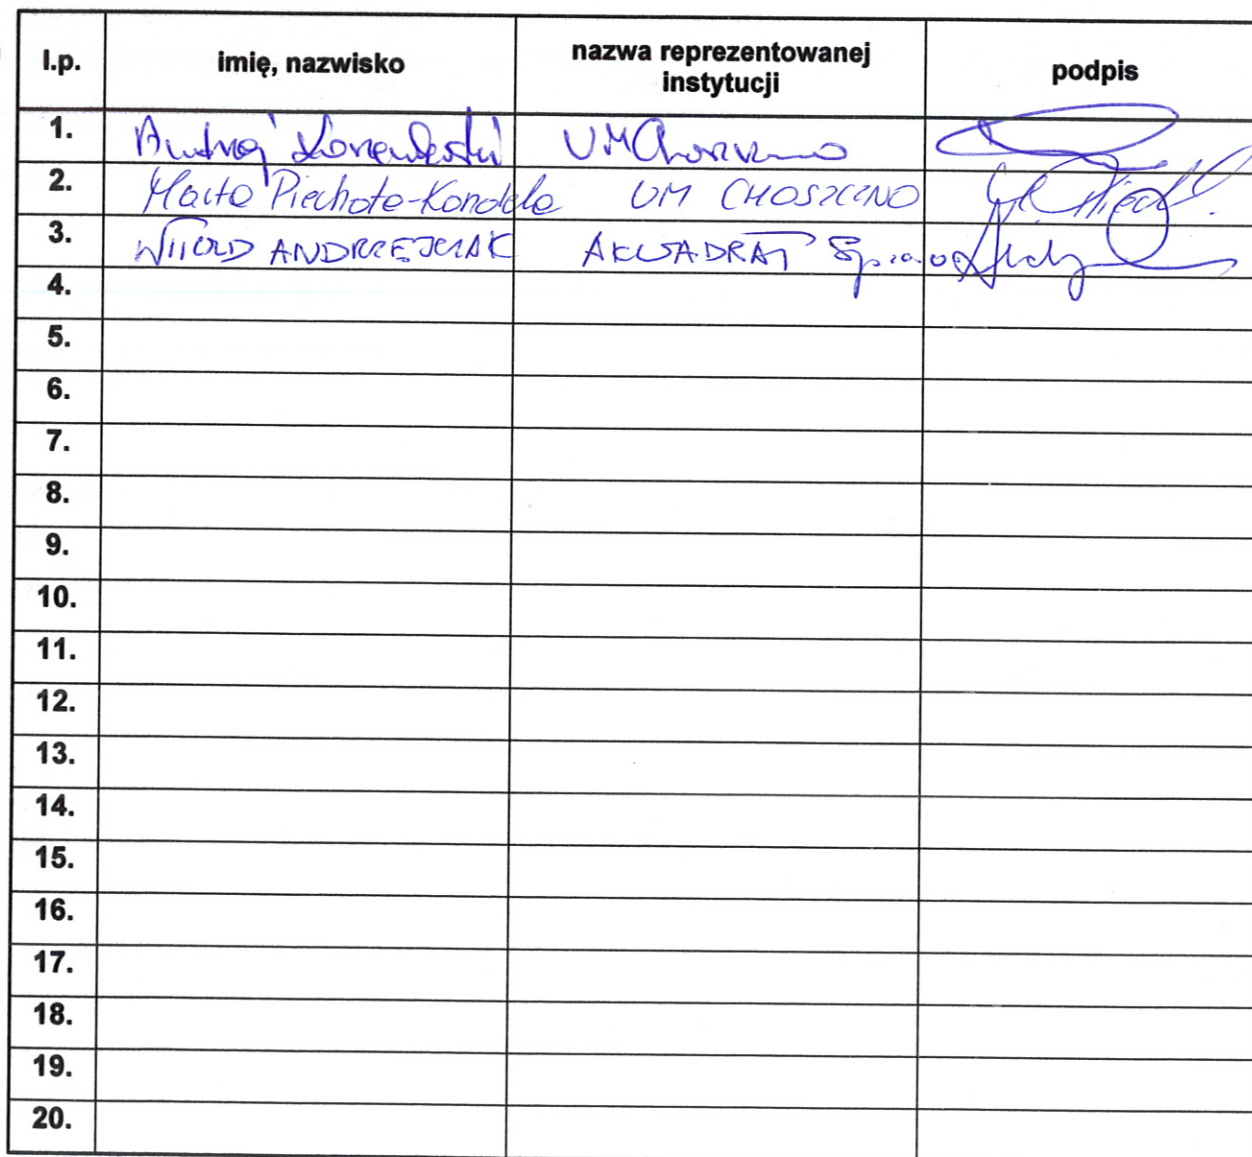 l.p. imię, nazwisko nazwa reprezentowanej instytucji podpis
1. UM Choszczno
2. Marta Piechota-Kondela UM CHOSZCZNO
3. WITOLD ANDRZEJCZAK AKWADRAT Sp. z o.o.
4.
5.
6.
7.
8.
9.
10.
11.
12.
13.
14.
15.
16.
17.
18.
19.
20.